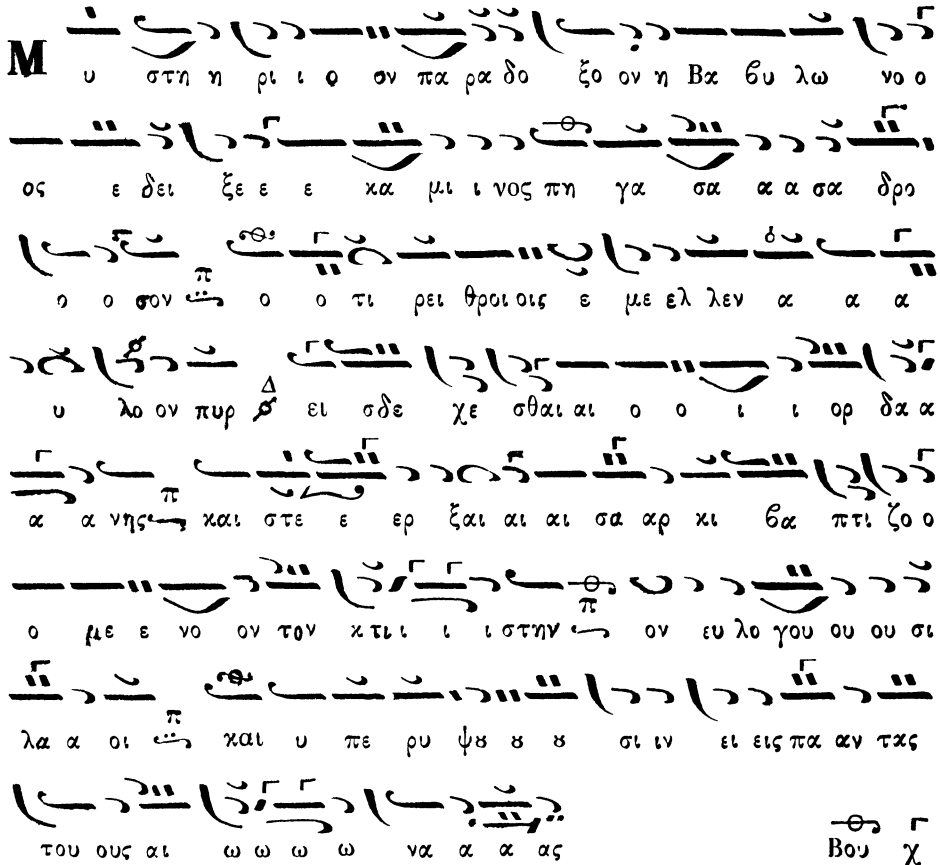 Μ υ στη η ρι ι ο ον πα ρα δο ξο ον η Βα βυ λω νο ο
ος ε δει ξε ε ε κα μι ι νος πη γα σα α α σα δρο
ο ο σον π ο ο τι ρει θροι οις ε με ελ λεν α α α
υ λο ον πυρ Δ ει σδε χε σθαι αι ο ο ι ι ορ δα α
α α νης π και στε ε ερ ξαι αι αι σα αρ κι βα πτι ζο ο
ο με ε νο ον τον κτι ι ι ι στην π ον ευ λο γου ου ου σι
λα α οι π και υ πε ρυ ψȣ ȣ ȣ σι ιν ει εις πα αν τας
του ους αι ω ω ω ω να α α ας Βου χ